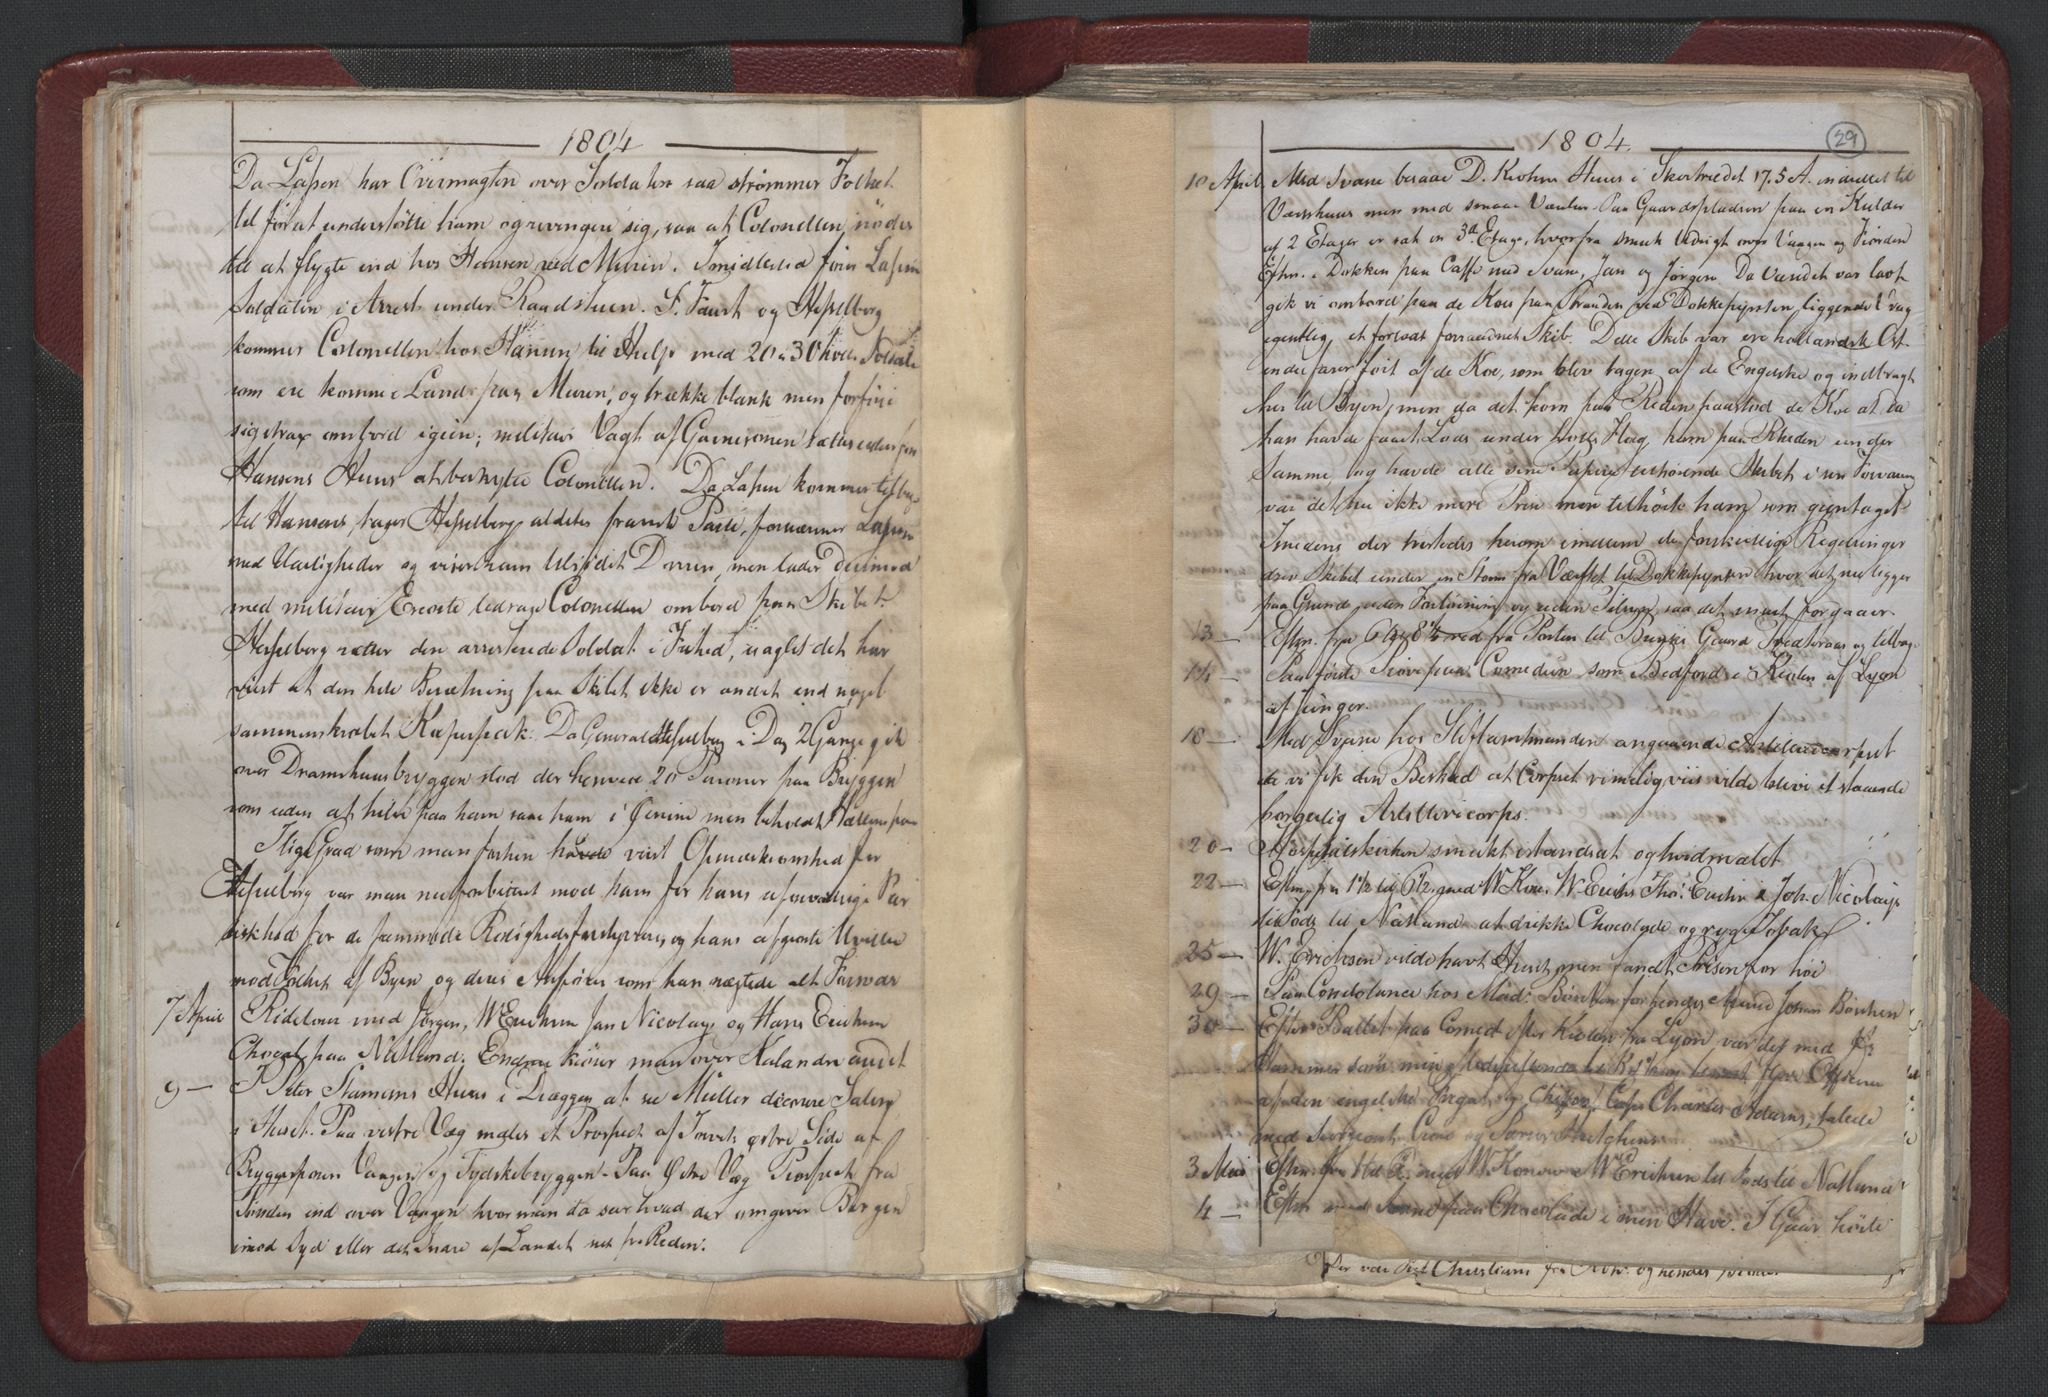 1804
Da Lassen har Overmagten over Soldaten saa strømmer Folket
til for at understøtte ham og revengere sig, saa at Colonellen nødes
til at flygte ind hos Hansen ved Muren. Imidlertid fører Lassen
Soldaten i Arrest under Raadstuen. F. Faust og Hesselberg
kommer Colonellen hos Hansen til Hielp med 20 a 30 holl: Soldater
som ere komne i Land paa Muren, og trække blank men forføie
sig strax ombord igien; militair Vagt af Garnisonen sættes uden for
Hansens Huus at beskytte Colonellen. Da Lassen kommer tilbage
til Hansens, tager Hesselberg aldeles fransk Partie, fornærmer Lassen
med Uartigheder og viser ham tilsidst Døren, men lader derimod
med militair Escorte ledsage Colonellen ombord paa Skibet.
Hesselberg sætter den arresterede Soldat i Frihed, uagtet det har
viist at den hele Besætning paa Skibet ikke er andet end noget
sammenskrabet Kaperpak: Da General Hesselberg i Dag 2 Gange gik
over Dramshuusbryggen stod der henved 20 Personer paa Bryggen
som uden at hilse paa ham saae ham i Øinene men beholdt Hattene paa
I lige Grad som man forhen havde viist Opmærksomhed for
Hesselberg var man nu forbittret mod ham for hans aabenbarlige Par
tiskhed for de fremmede Rolighedsforstyrrere, og hans afgjorte Uvillie
mod Folket af Byen og deres Anfører som han nægtede alt Forsvar
7 April Ridetour med Jørgen, W Erichsen Jan Nicolays og Hans Erichsen
Chocol. paa Natland. Endnu kiører man over Kalandrevandet
9 — I Peter Stamans Huus i Dræggen at see Müller decorere Salen
i Huset. Paa vestre Væg males et Prospect af Torvets østre Side af
Byggesporen Vaagen og Tydskebryggen - Paa Østre Væg Prospect fra
Sønden ind over Vaagen hvor man da saae hvad der omgiver Bergen
imod Syd eller det Indre af Landet net fra Reden.
1804. 29
10 April Med Svane besaae D. Krohns Huus i Skostrædet 17.5 A. indrettet til
Værtshuus men med smaae Værelser. Paa Gaardspladsen paa en Kielder
af 2 Etager er sat en 3d. Etage, hvorfra smuk Udsigt over Vaagen og Fiorden
Eftm. i Dokken paa Caffe med Svane, Jan og Jørgen. Da Vandet var lavt
gik vi ombord paa de Koe paa Stranden ved Dokkepynten liggende Vrag
egentlig et forladt forraadnet Skib. Dette Skib var en hollandsk Ost-
indiefarer ført af de Koe, som blev tagen af de Engelske og indbragt
her til Byen, men da det kom paa Reden paastod de Koe at da
han havde faaet Lods under holl: Flag, kom paa Rheden under
samme, og havde alle sine Papirer tilhørende Skibet i sin Forvaring
var det nu ikke mere Prise men tilhørte ham som gientaget
Imedens der tvistedes herom imellem de forskiellige Regieringer
drev Skibet under en Storm fra Værftet til Dokkepynten hvor det nu ligger
paa Grund, uden Fortøining og uden Tilsyn, saa det snart forgaaer.
13 — Eftm. fra 6 til 8½ red fra Porten til Birgits Gaard Fredteraas og tilbage
14 — Paa første Prøve paa Comedien som Bedford i Kiolen af Lyon
af Unger.
18 — Med Svane hos Stiftamtmanden angaaende Artilleriecorpset
da vi fik den Besked at Corpset rimeligviis vilde blive et staaende
borgerlig Artilleriecorps.
20 — Hospitalskirken smukt istandsat og hvidmalet
22 — Eftm. fra 1½ til 6½ med W Kon. W. Erichs. Tho: Erichs. i Joh. Nicolays
til Fods til Natland at drikke Chocolade og ryge Tobak
25 — W. Erichsen vilde havt Huset men fandt Prisen for høi
29 — Paa Condolence hos Mad: Børchsen for hendes Mand Johan Børchsen
30 — Efter Ballet paa Comed. efter Kiolen fra Lyon, var der med
af den engelske Fregat Chiffone Capt Charles Adams, talede
med Sergeant Cross og Hutchins
3 Mai Eftm. med W. Konow W Erichsen til Fods til Natland
4 — Eftm med Svane paa Chocolade i min Have. I Gaar hørte
Der var Christians fra og hendes